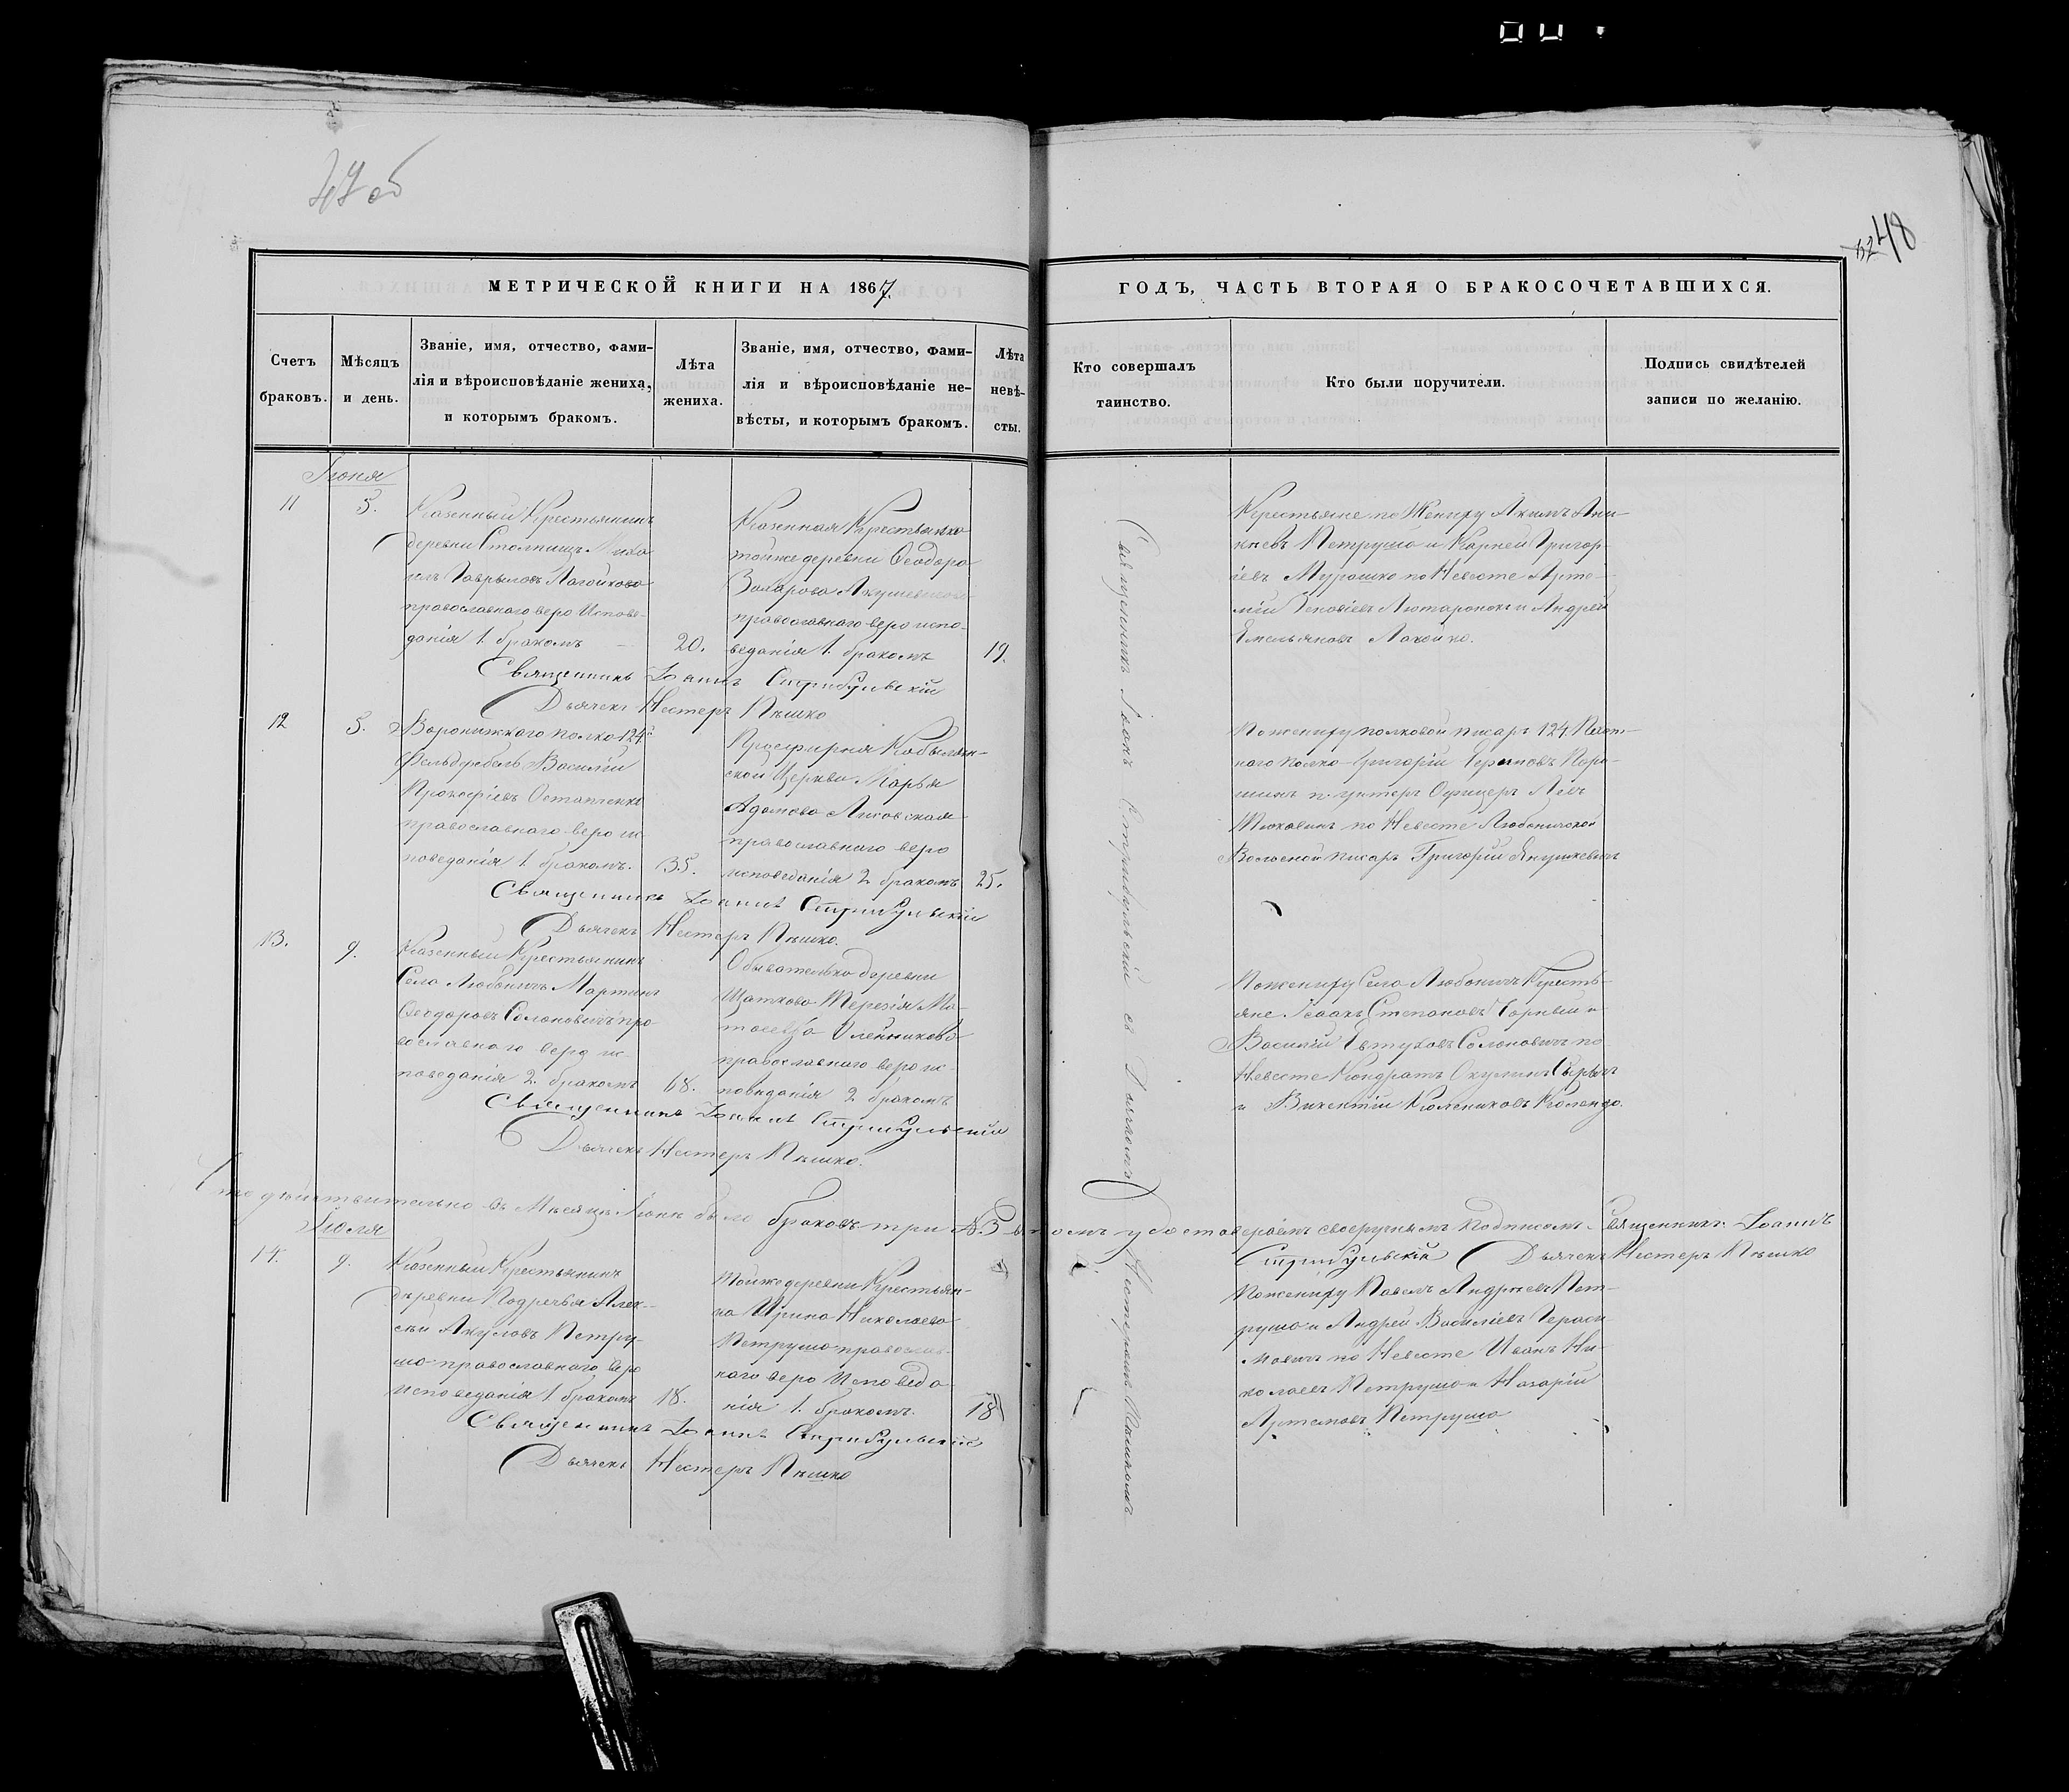 47 об
48
МЕТРИЧЕСКОЙ КНИГИ НА 1867.
ГОДЪ, ЧАСТЬ ВТОРАЯ О БРАКОСОЧЕТАВШИХСЯ.
Счетъ
браковъ.
Мѣсяцъ
и день.
Званіе, имя, отчество, фами-
лія и вѣроисповѣданіе жениха,
и которымъ бракомъ.
Лѣта
жениха.
Званіе, имя, отчество, фами-
лія и вѣроисповѣданіе не-
вѣсты, и которымъ бракомъ.
Лѣта
невѣ-
сты.
Кто совершалъ
таинство.
Кто были поручители.
Подпись свидѣтелей
записи по желанію.
Іюня
11
5.
Казенный Крестьянинъ
деревни Столпищъ Миха
илъ Гаврыловъ
православнаго веро Испове-
данія 1. бракомъ
20.
Казенная Крестьянка
тойже деревни Ѳеодора
православнаго веро испо-
веданія 1. бракомъ
19.
Крестьяне по Жениху Акимъ Ани-
кѣевъ Петрушо и Карней Григор-
іевъ Мурашко по Невесте Арте-
мій и Андрей
Емельяновъ
Священникъ Іоаннъ Стрибульскій
Дьячекъ Нестеръ Пѣшко
12
5.
Воронижкаго полка 124.
Фельдфебель Василій
Прокофіевъ Остапенко
православнаго веро ис-
поведанія 1. бракомъ.
35.
Просфирня
ской Церкви Марья
Адамова
православнаго веро
исповеданія 2 бракомъ
25.
По жениху полковой писарь 124
наго полка Григорій
унтеръ Офицеръ
по Невесте Любоничской
Волосной писарь Григорій Янушкевичъ
Священникъ Іоаннъ Стрибульскій
Дьячекъ Нестеръ Пѣшко.
13.
9.
Казенный Крестьянинъ
Села Любоничъ Мартинъ
Ѳеодоровъ Солоновичъ пра
вославнаго веро ис-
поведанія 2. бракомъ
68.
Обывателька деревни
Щаткова Терезія Ма-
православнаго веро ис-
поведанія 2 бракомъ
По жениху Села Любоничъ Кресть-
яне Ісаакъ Степановъ Горный и
Василій Солоновичъ по
Невесте Кондратъ
и Викентій
Священникъ Іоаннъ Стрибульскій
Дьячекъ Нестеръ Пѣшко.
Что действительно въ Мѣсяцѣ Іюнѣ было браковъ три №3 въ томъ удостоверяемъ своеручнымъ подписомъ. Священникъ Іоаннъ
Стрибульскій Дьячекъ Нестеръ Пѣшко
Іюля
14.
9.
Казенный Крестьянинъ
деревни Подречья Алек-
сѣй Акуловъ Петру-
шо православнаго веро
исповеданія 1. бракомъ
18.
Тойже деревни Крестьян-
ка Ирина Николаева
Петрушо православ-
наго веро Исповеда
нія 1. бракомъ.
18
По жениху Павелъ Андреевъ Пет-
рушо и Андрей Василіевъ Гераси-
мовичъ по Невесте Иванъ Ни-
колаевъ Петрушо и Назарій
Артемовъ Петрушо
Священникъ Іоаннъ Стрибульскій
Дьячекъ Нестеръ Пѣшко
Священникъ Іоанъ Стрибульскій съ Дьячкомъ Нестеромъ Пѣшкомъ